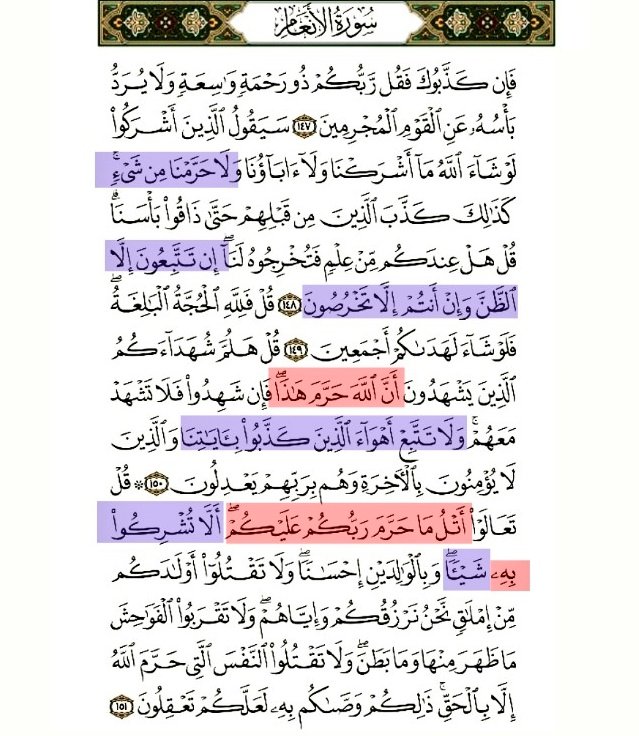 سُورَةُ الأَنْعَامِ
فَإِن كَذَّبُوكَ فَقُل رَّبُّكُمْ ذُو رَحْمَةٍ وَٰسِعَةٍ وَلَا يُرَدُّ
بَأْسُهُۥ عَنِ ٱلْقَوْمِ ٱلْمُجْرِمِينَ ١٤٧ سَيَقُولُ ٱلَّذِينَ أَشْرَكُوا۟
لَوْ شَآءَ ٱللَّهُ مَآ أَشْرَكْنَا وَلَآ ءَابَآؤُنَا وَلَا حَرَّمْنَا مِن شَىْءٍۚ
كَذَٰلِكَ كَذَّبَ ٱلَّذِينَ مِن قَبْلِهِمْ حَتَّىٰ ذَاقُوا۟ بَأْسَنَاۗ
قُلْ هَلْ عِندَكُم مِّنْ عِلْمٍ فَتُخْرِجُوهُ لَنَآۖ إِن تَتَّبِعُونَ إِلَّا
ٱلظَّنَّ وَإِنْ أَنتُمْ إِلَّا تَخْرُصُونَ ١٤٨ قُلْ فَلِلَّهِ ٱلْحُجَّةُ ٱلْبَٰلِغَةُۖ
فَلَوْ شَآءَ لَهَدَىٰكُمْ أَجْمَعِينَ ١٤٩ قُلْ هَلُمَّ شُهَدَآءَكُمُ
ٱلَّذِينَ يَشْهَدُونَ أَنَّ ٱللَّهَ حَرَّمَ هَٰذَاۖ فَإِن شَهِدُوا۟ فَلَا تَشْهَدْ
مَعَهُمْۚ وَلَا تَتَّبِعْ أَهْوَآءَ ٱلَّذِينَ كَذَّبُوا۟ بِـَٔايَٰتِنَا وَٱلَّذِينَ
لَا يُؤْمِنُونَ بِٱلْـَٔاخِرَةِ وَهُم بِرَبِّهِمْ يَعْدِلُونَ ١٥٠ ۞ قُلْ
تَعَالَوْا۟ أَتْلُ مَا حَرَّمَ رَبُّكُمْ عَلَيْكُمْۖ أَلَّا تُشْرِكُوا۟
بِهِۦ شَيْـًٔاۖ وَبِٱلْوَٰلِدَيْنِ إِحْسَٰنًاۖ وَلَا تَقْتُلُوٓا۟ أَوْلَٰدَكُم
مِّنْ إِمْلَٰقٍۖ نَّحْنُ نَرْزُقُكُمْ وَإِيَّاهُمْۖ وَلَا تَقْرَبُوا۟ ٱلْفَوَٰحِشَ
مَا ظَهَرَ مِنْهَا وَمَا بَطَنَۖ وَلَا تَقْتُلُوا۟ ٱلنَّفْسَ ٱلَّتِى حَرَّمَ ٱللَّهُ
إِلَّا بِٱلْحَقِّۚ ذَٰلِكُمْ وَصَّىٰكُم بِهِۦ لَعَلَّكُمْ تَعْقِلُونَ ١٥١